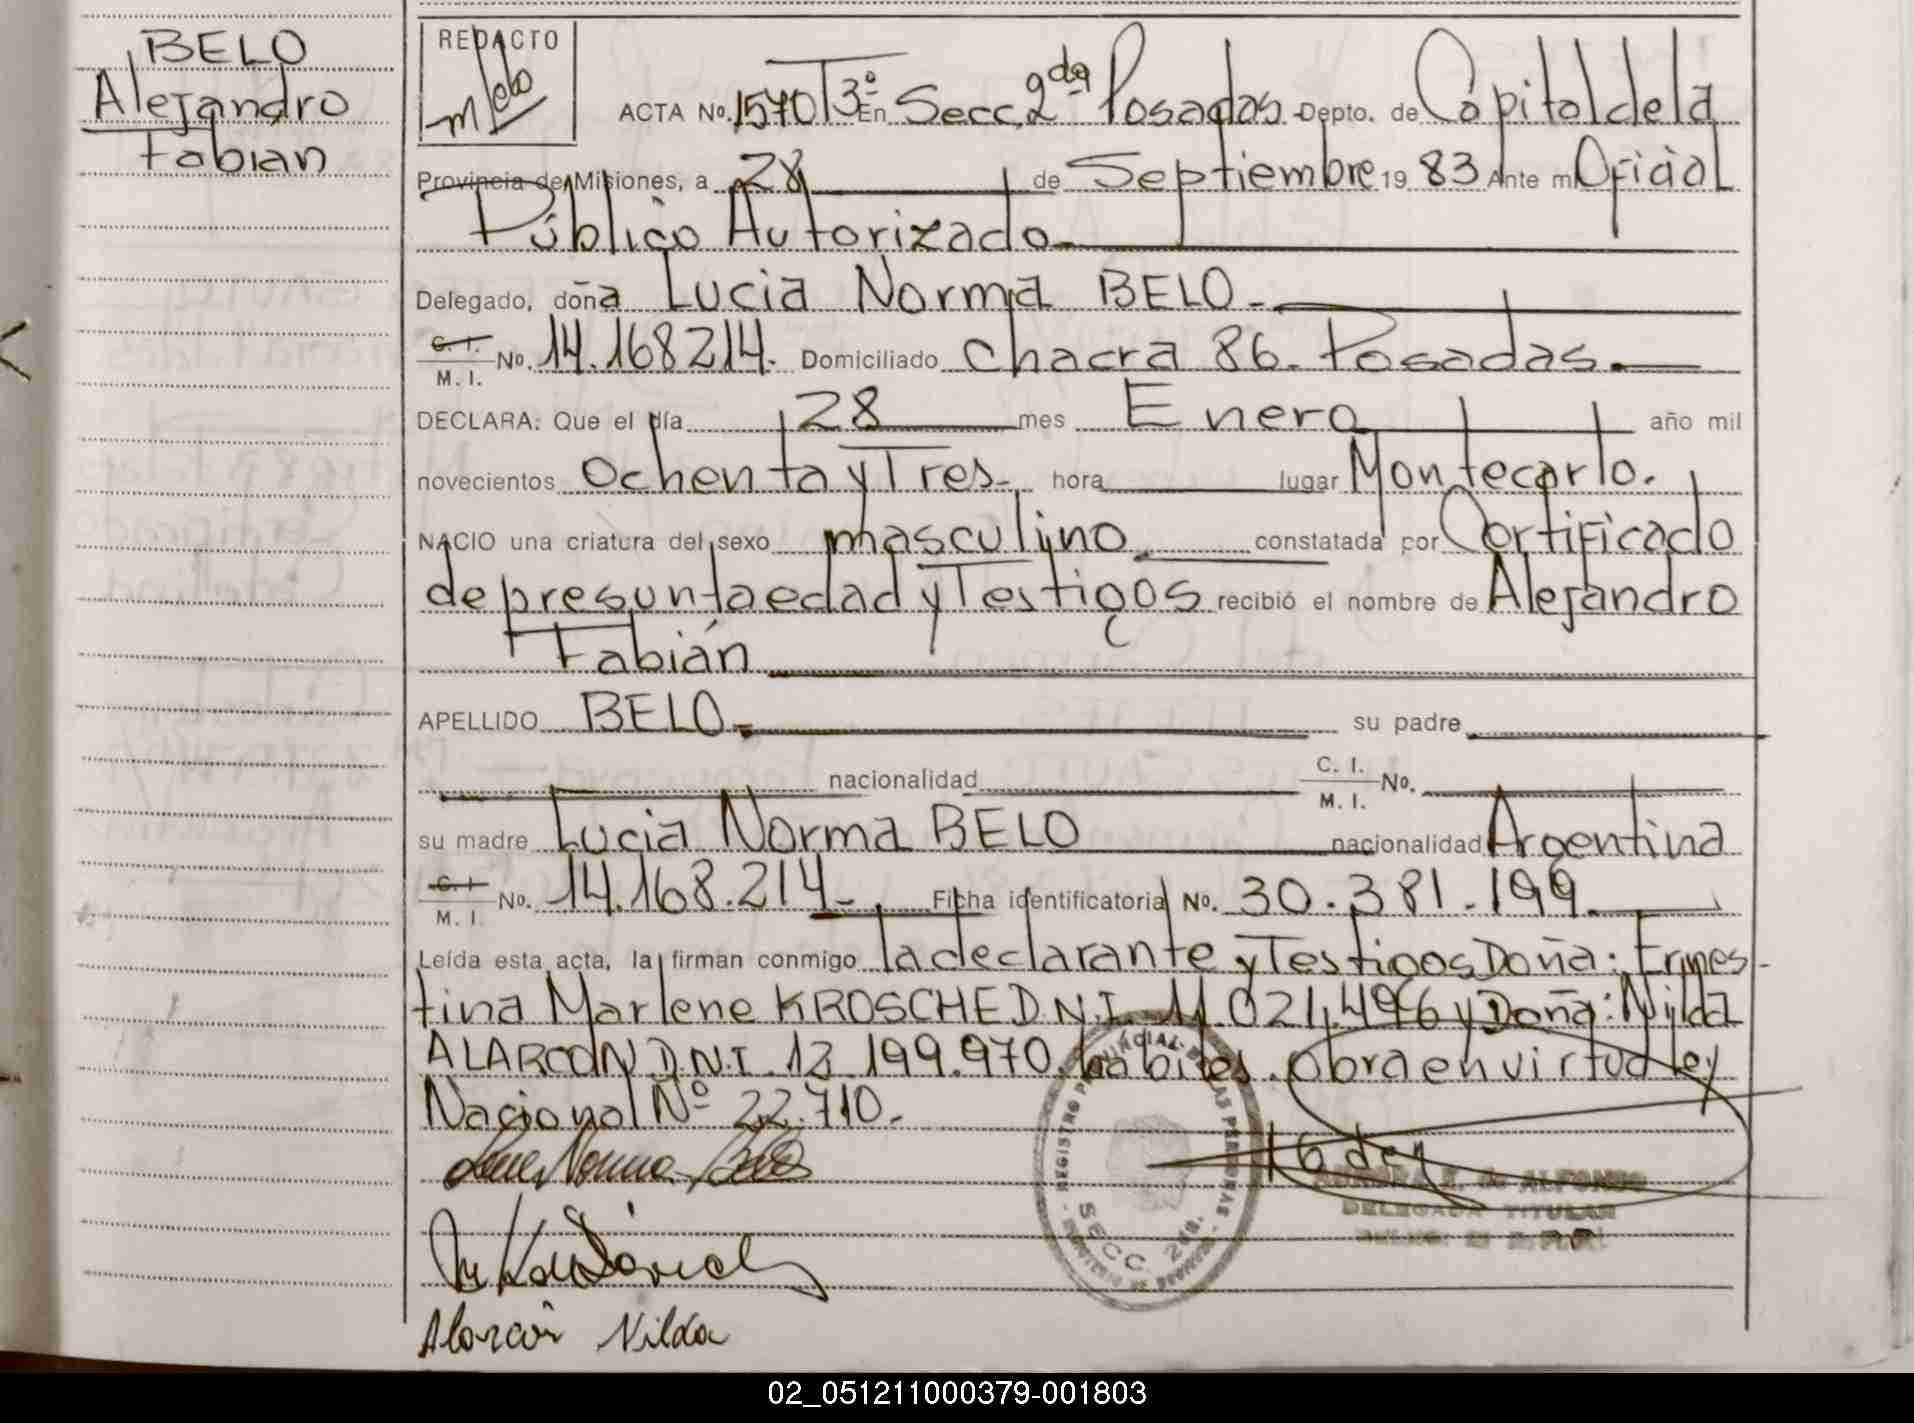 BELO
Alejandro
Fabian
REDACTO
Melo
ACTA No. 1570 T3º En Secc. 2da Posadas Depto. de Capital de la
Provincia de Misiones, a 28 de Septiembre 19 83 Ante mi Oficial
Público Autorizado.
Delegado, doña Lucia Norma BELO.
C. I.
M. I. No. 14.168214. Domiciliado Chacra 86. Posadas.
DECLARA: Que el día 28 mes Enero año mil
novecientos ochenta y Tres. hora lugar Montecarlo.
NACIO una criatura del sexo masculino. constatada por Certificado
de presunta edad y Testigos recibió el nombre de Alejandro
Fabián
APELLIDO BELO. su padre
nacionalidad C. I.
M. I. No.
su madre Lucia Norma BELO nacionalidad Argentina
C. I.
M. I. No. 14.168.214. Ficha identificatoria No. 30.381.199.
Leída esta acta, la firman conmigo la declarante y Testigos Doña: Ernes-
tina Marlene KROSCHE D.N.I. 11.021.496 y Doña: Nilda
ALARCON D.N.I. 12.199.970. habiles. obra en virtud ley
Nacional Nº 22.710.
Norma Belo
REGISTRO PROVINCIAL DE LAS PERSONAS
SECC. 2da.
AURORA E. de ALFONSO
DELEGADA TITULAR
Alarcón Nilda
02_051211000379-001803